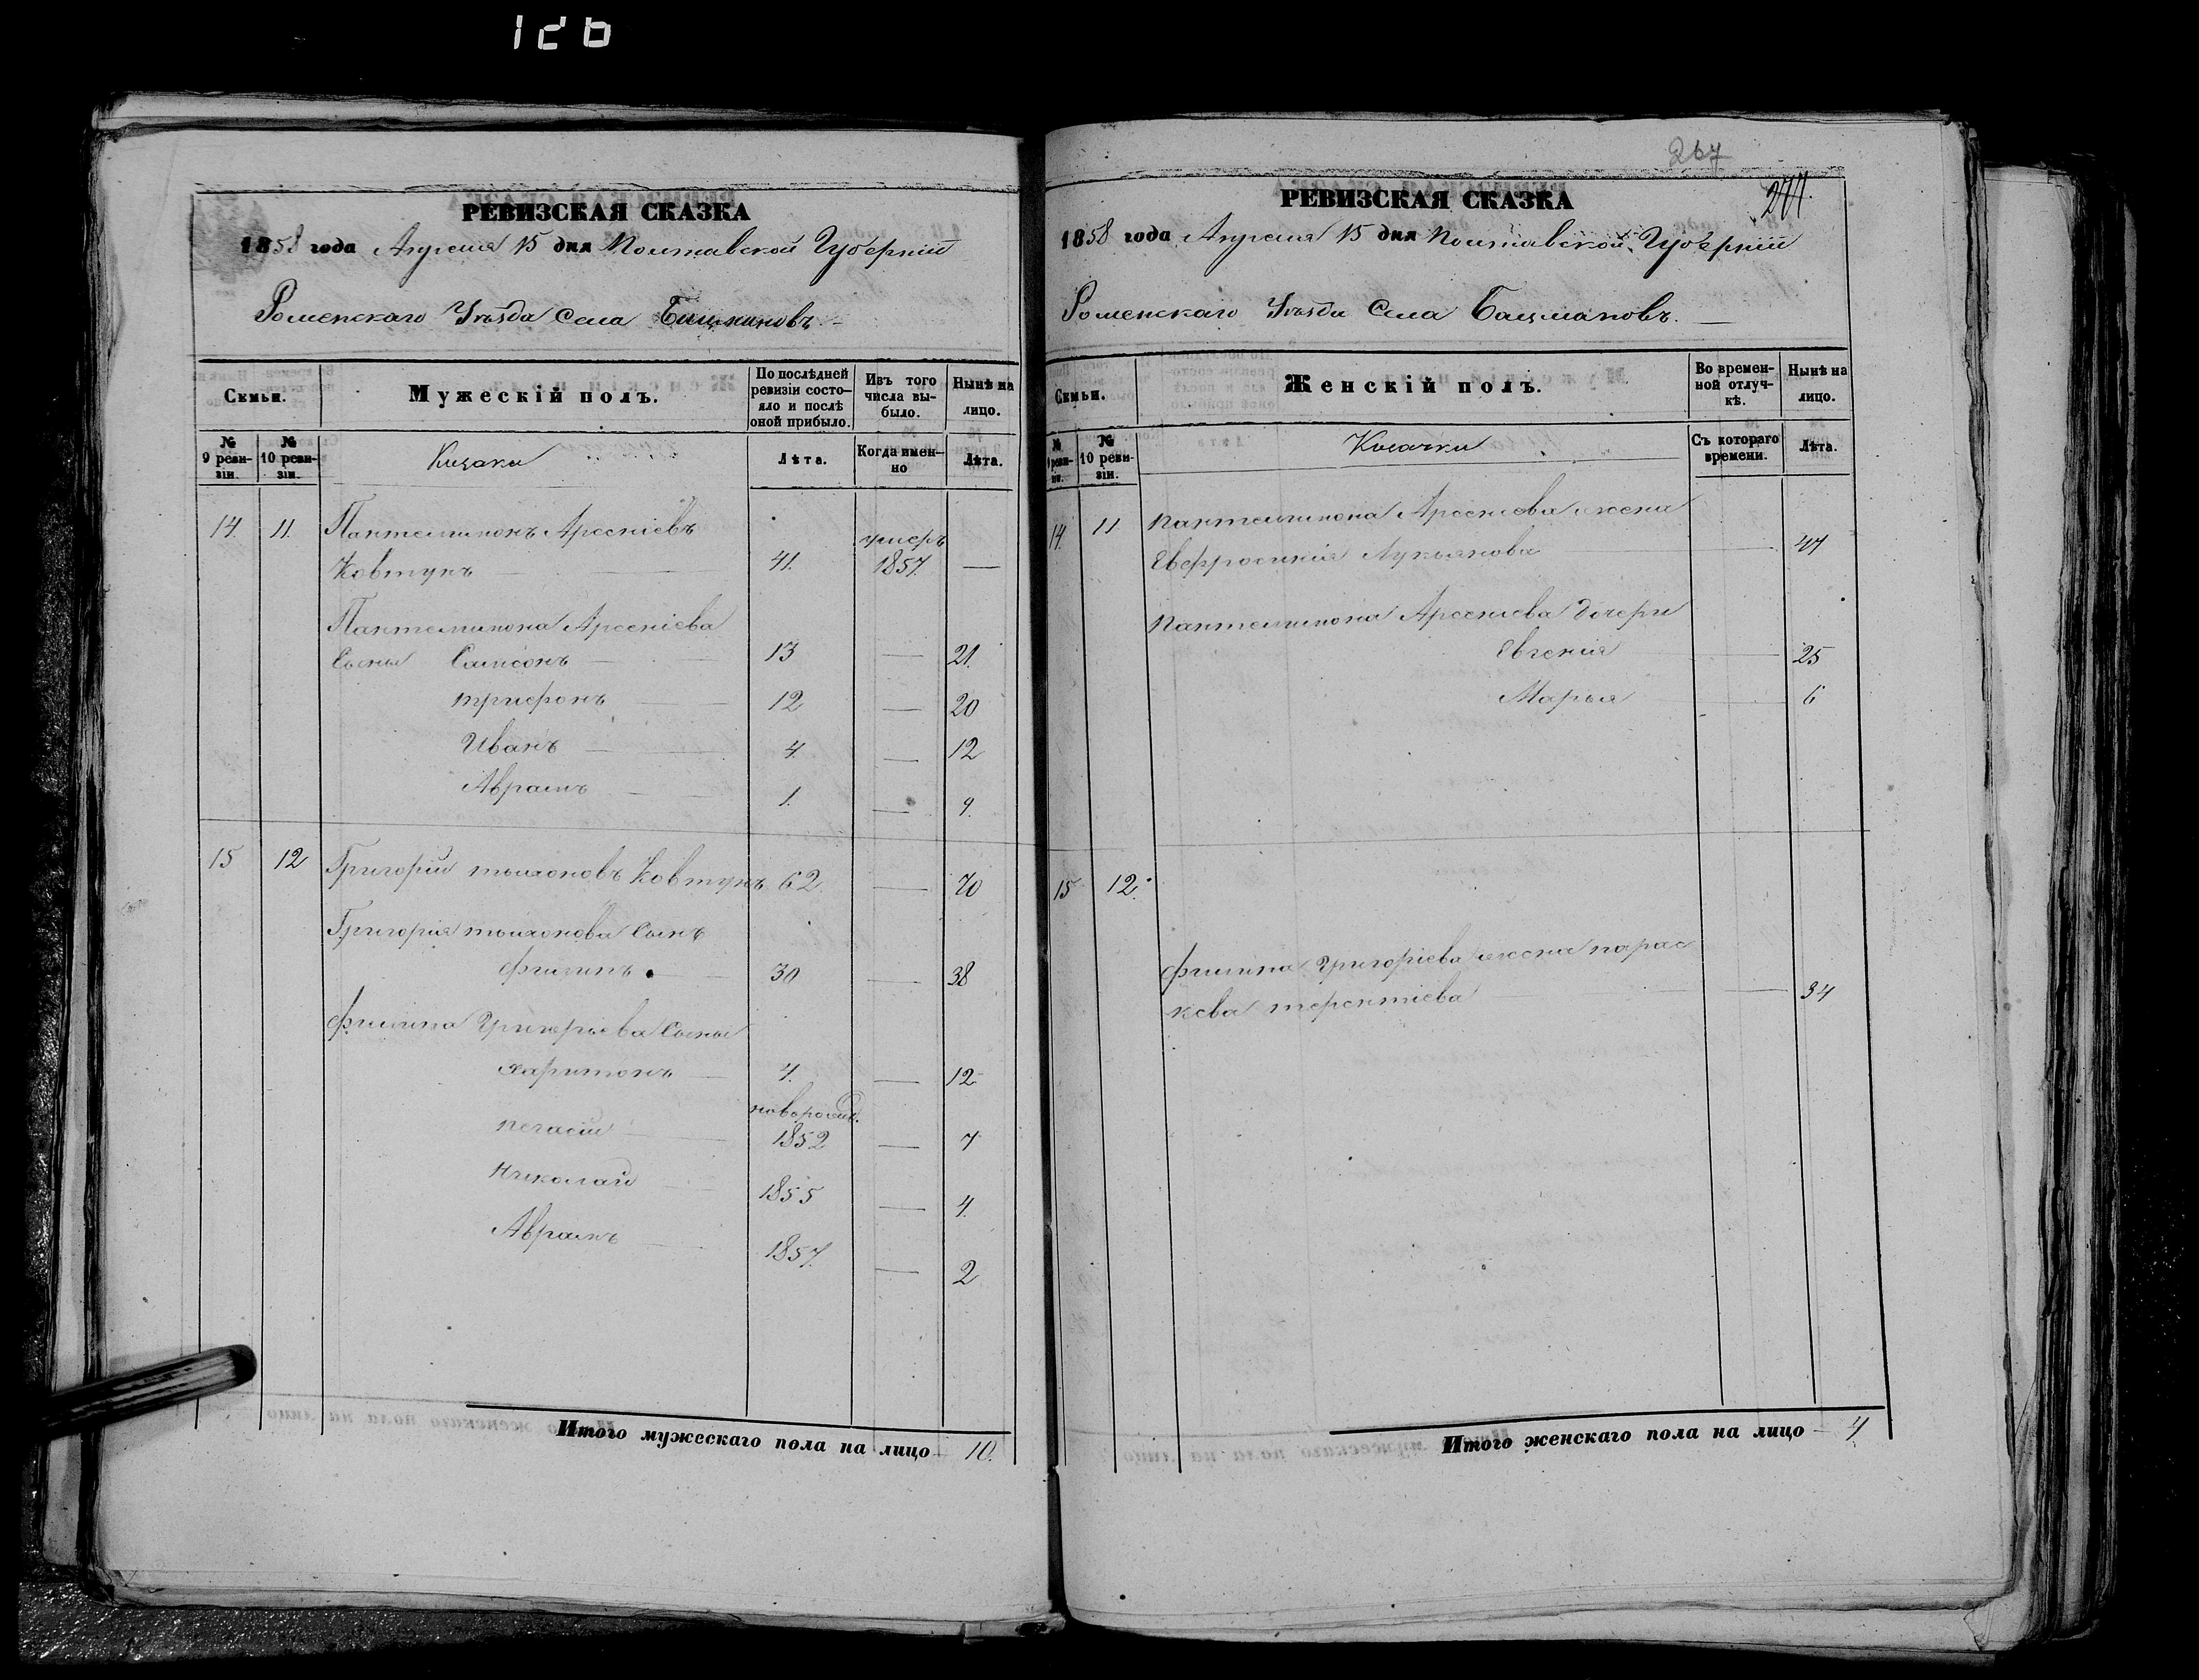 126
РЕВИЗСКАЯ СКАЗКА
1858 года Апреля 15 дня Полтавской Губерніи
Роменскаго Уѣзда Села Бацмановъ.
Семьи.
Мужескій полъ.
По послѣдней ревизіи состо-
яло и послѣ
оной прибыло.
Изъ того
числа вы-
было.
Нынѣ на
лицо.
№
9 реви-
зіи.
№
10 реви-
зіи.
Козаки
Лѣта.
Когда имен-
но
Лѣта.
14. 11. Пантелимонъ Арсеніевъ
Ковтунъ 41. умеръ 1857. —
Пантелимона Арсеніева
Сыны Самсонъ — 13 — 21.
Трифонъ — 12 — 20
Иванъ — 4. — 12
Аврамъ — 1. — 9.
15 12 Григорій тихоновъ Ковтунъ 62 — 70
Григорія тихонова Сынъ
филипъ — 30 — 38
филипа Григорьева Сыны
харитонъ — 4. — 12
новорожд.
1852 — 7
Николай — 1855 — 4.
Аврамъ — 1857. — 2
Итого мужескаго пола на лицо — 10.
267
277.
РЕВИЗСКАЯ СКАЗКА
1858 года Апреля 15 дня Полтавской Губерніи
Роменскаго Уѣзда Села Бацмановъ. —
Семьи.
Женскій полъ.
Во времен-
ной отлуч-
кѣ.
Нынѣ на
лицо.
№
9 реви-
зіи.
№
10 реви-
зіи.
Козачки
Съ котораго
времени.
Лѣта.
14. 11 пантелимона Арсениева жена
Евфросинія Лукьянова — 47
пантелимона Арсениева дочери
Евгенія — 25
Марья — 6
15 12. филипа Григоріева жена парас
кева терентіева — 34
Итого женскаго пола на лицо — 4